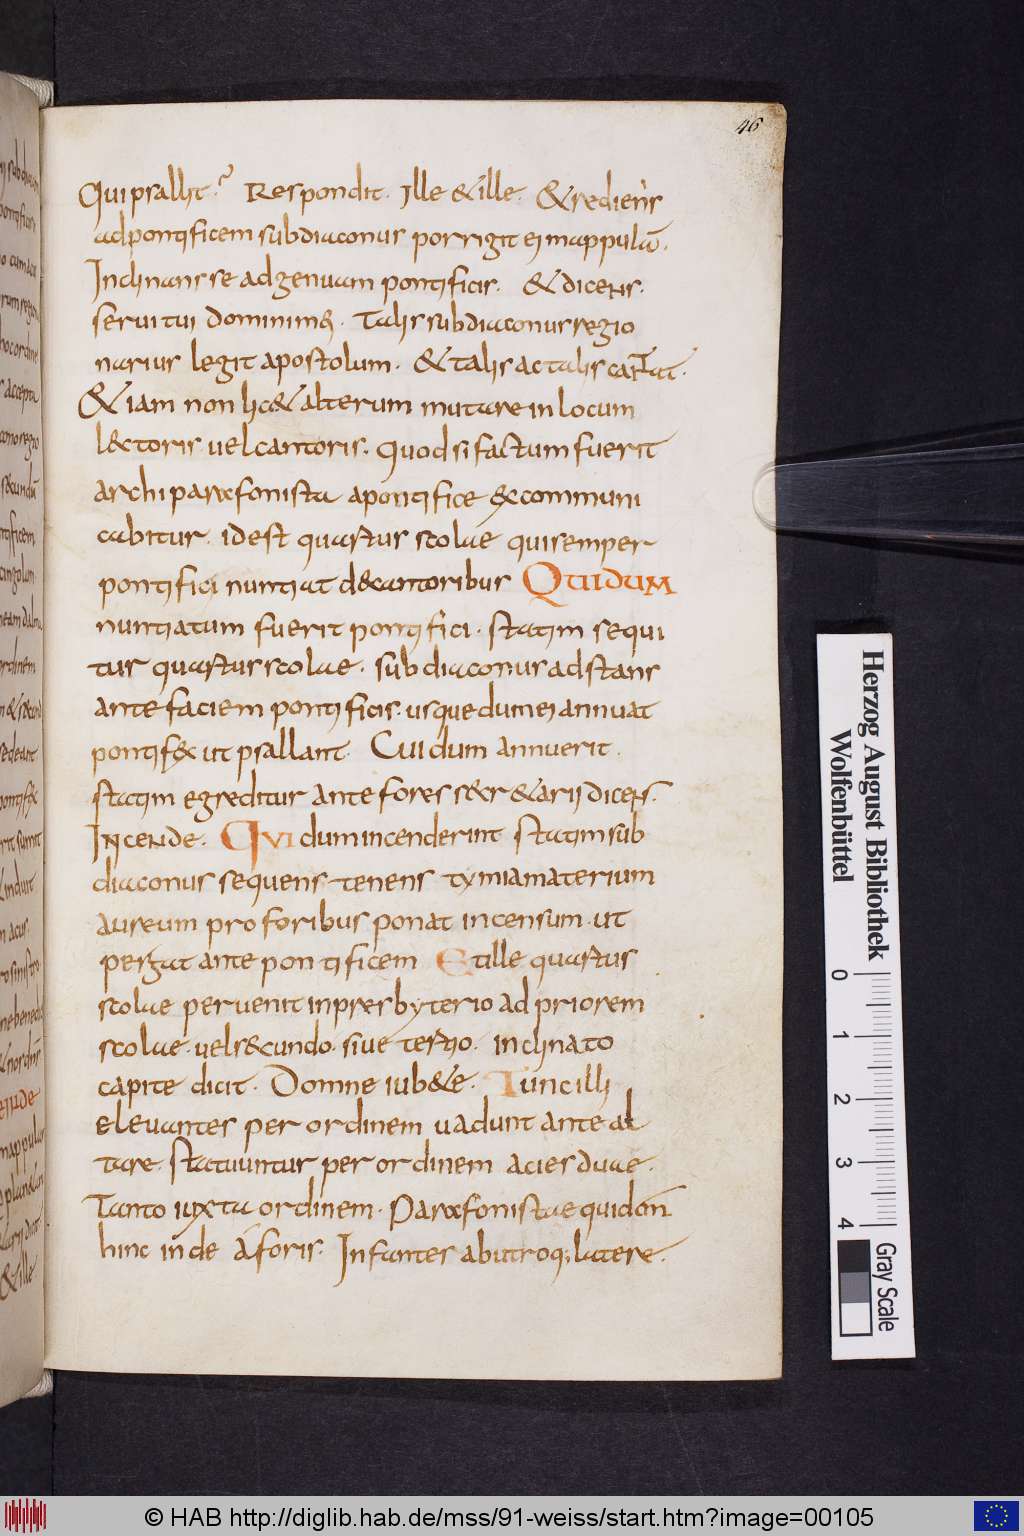 46
Qui psallit? Respondit. Ille & ille. & rediens
ad pontificem subdiaconus porrigit ei mappulā.
Inclinans se ad genuam pontificis. & dicens.
serui tui domini mei. Talis subdiaconus regio
narius legit apostolum. & talis ac talis cantat.
& iam non lic& alterum mutare in locum
l&toris. uel cantoris. Quod si factum fuerit
archiparafonista a pontifice excommuni
cabitur. id est quartus scolae qui semper
pontifici nuntiat d& cantoribus QUIDUM
nuntiatum fuerit pontifici. statim sequi
tur quartus scolae. subdiaconus adstans
ante faciem pontificis. usque dum ei annuat
pontif& ut psallant. Cui dum annuerit.
statim egreditur ante fores s&r&arii dicens.
INCENDE. QUI dum incenderint statim sub
diaconus sequens tenens tymiamaterium
aureum pro foribus ponat incensum. ut
pergat ante pontificem Et ille quartus
scolae peruenit in presbyterio ad priorem
scolae. uel s&cundo. siue tertio. inclinato
capite dicit. Domne iub&e. Tunc illi
eleuantes per ordinem uadunt ante al
tare. statuuntur per ordinem acies duae.
Tanto iuxta ordinem. Parafonistae quidem
hinc inde a foris. Infantes ab utroq; latere.
Herzog August Bibliothek
Wolfenbüttel
0 1 2 3 4
Gray Scale
© HAB http://diglib.hab.de/mss/91-weiss/start.htm?image=00105